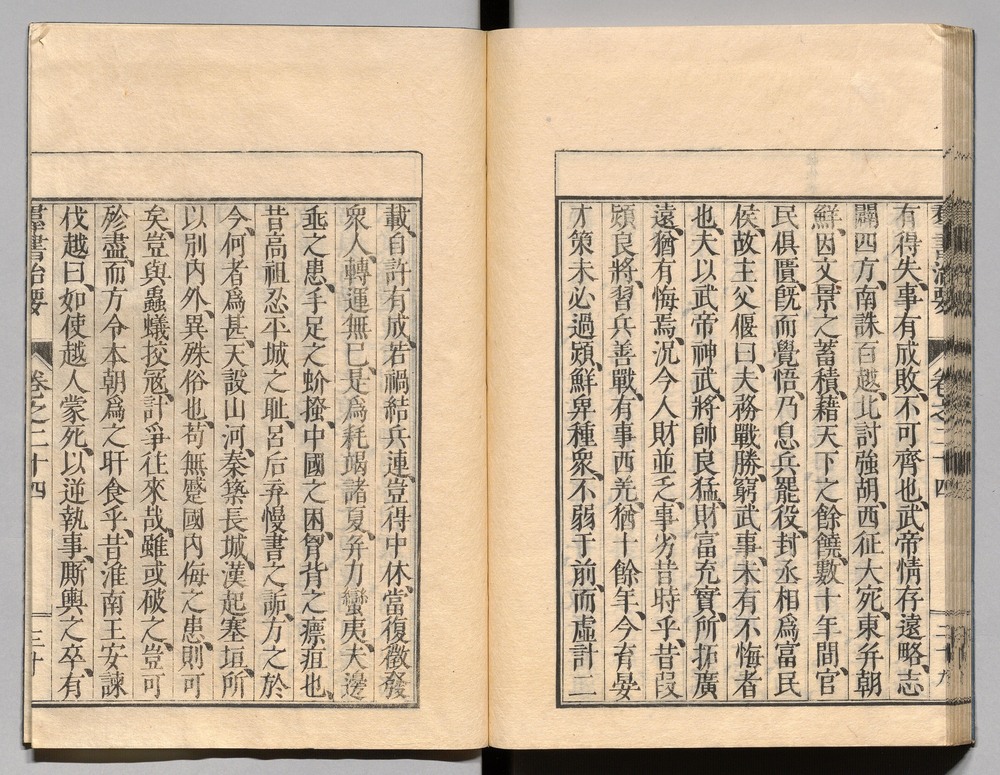 羣書治要 卷之二十四 二十九
有得失、事有成敗、不可齊也、武帝情存遠略、志
闢四方、南誅百越、北討強胡、西征大宛、東并朝
鮮、因文景之蓄積、藉天下之餘饒、數十年間、官
民俱匱、既而覺悟、乃息兵罷役、封丞相爲富民
侯、故主父偃曰、夫務戰勝、窮武事、未有不悔者
也、夫以武帝神武、將帥良猛、財富充實、所拓廣
遠、猶有悔焉、況今人財並乏、事劣昔時乎、昔段
熲良將、習兵善戰、有事西羌、猶十餘年、今育晏
才策、未必過熲、鮮卑種衆、不弱于前、而虛計二
載、自許有成、若禍結兵連、豈得中休、當復徵發
衆人、轉運無已、是爲耗竭諸夏、并力蠻夷、夫邊
垂之患、手足之蚧搔、中國之困、胷背之瘭疽也、
昔高祖忍平城之耻、呂后弃慢書之詬、方之於
今、何者爲甚、天設山河、秦築長城、漢起塞垣、所
以別內外、異殊俗也、苟無蹙國內侮之患、則可
矣、豈與蟲蟻挍冦、計爭往來哉、雖或破之、豈可
殄盡、而方令本朝爲之旰食乎、昔淮南王安諫
伐越曰、如使越人蒙死、以逆執事、厮輿之卒、有
羣書治要 卷之二十四 三十